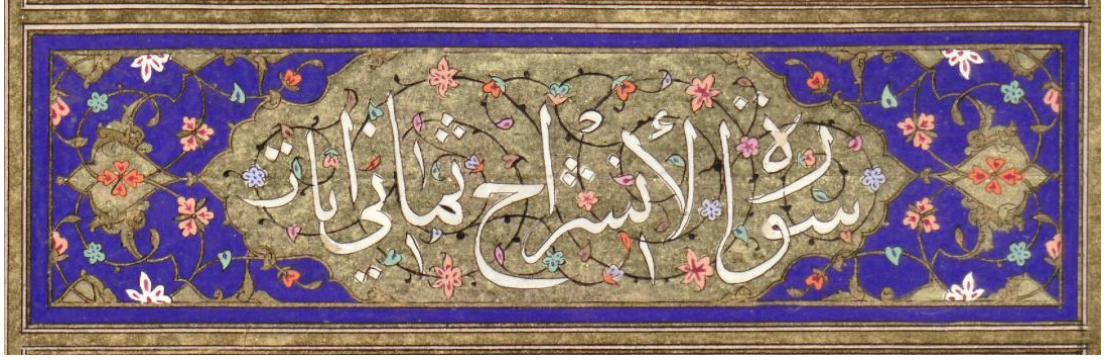 سورة الانشراح ثماني ايات